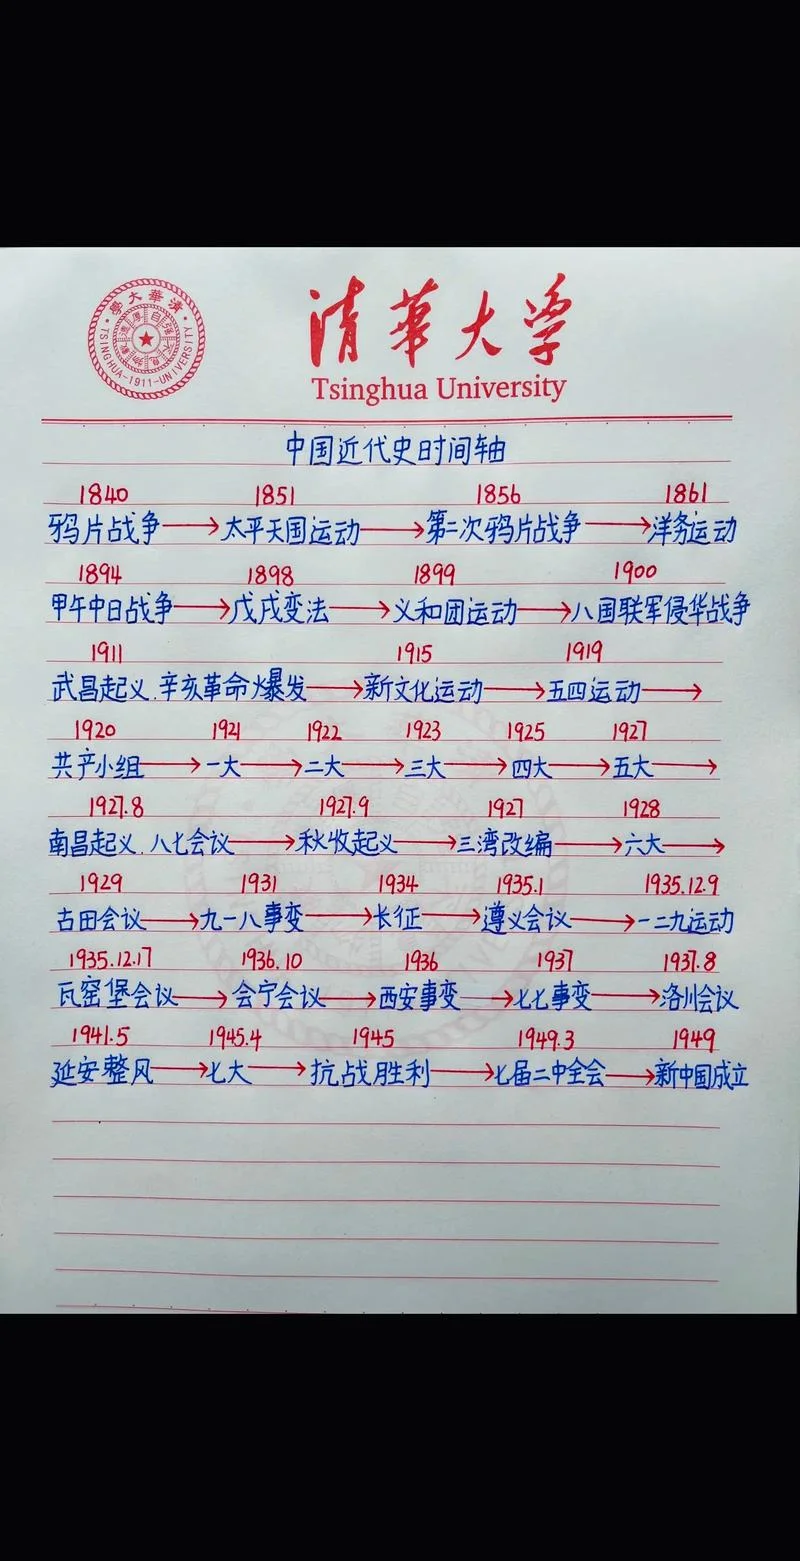 清華大學
TSINGHUA-1911-UNIVERSITY
清華大学
Tsinghua University
中国近代史时间轴
1840 1851 1856 1861
鸦片战争→太平天国运动→第二次鸦片战争→洋务运动
1894 1898 1899 1900
甲午中日战争→戊戌变法→义和团运动→八国联军侵华战争
1911 1915 1919
武昌起义.辛亥革命爆发→新文化运动→五四运动→
1920 1921 1922 1923 1925 1927
共产小组→一大→二大→三大→四大→五大→
1927.8 1927.9 1927 1928
南昌起义.八七会议→秋收起义→三湾改编→六大→
1929 1931 1934 1935.1 1935.12.9
古田会议→九一八事变→长征→遵义会议→一二九运动
1935.12.17 1936.10 1936 1937 1937.8
瓦窑堡会议→会宁会议→西安事变→七七事变→洛川会议
1941.5 1945.4 1945 1949.3 1949
延安整风→七大→抗战胜利→七届二中全会→新中国成立